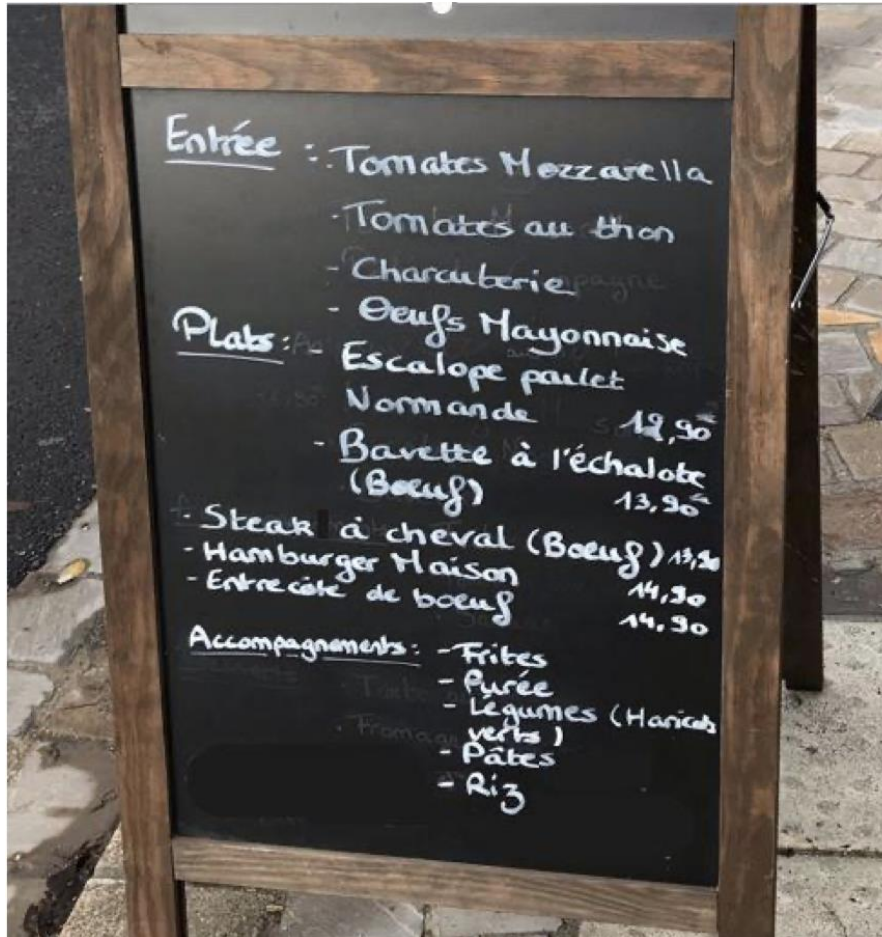 Entrée : - Tomates Mozzarella
- Tomates au thon
- Charcuterie
- Oeufs Mayonnaise
Plats : - Escalope poulet
Normande 12,90
- Bavette à l'échalote
(Boeuf) 13,90
- Steak à cheval (Boeuf) 13,90
- Hamburger Maison 14,90
- Entrecôte de boeuf 14.90
Accompagnements : - Frites
- Purée
- Légumes (Haricots
verts)
- Pâtes
- Riz